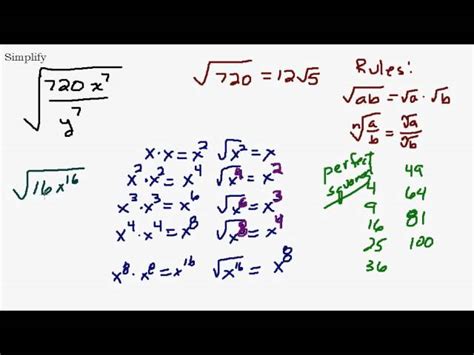 Simplify
√(720 x⁷ / y⁷)
√720 = 12√5
Rules:
√ab = √a · √b
ⁿ√(a/b) = ⁿ√a / ⁿ√b
√16x¹⁶
x·x = x² √x² = x
x²·x² = x⁴ √x⁴ = x²
x³·x³ = x⁶ √x⁶ = x³
x⁴·x⁴ = x⁸ √x⁸ = x⁴
x⁸·x⁸ = x¹⁶ √x¹⁶ = x⁸
perfect
squares
4
9
16
25
36
49
64
81
100